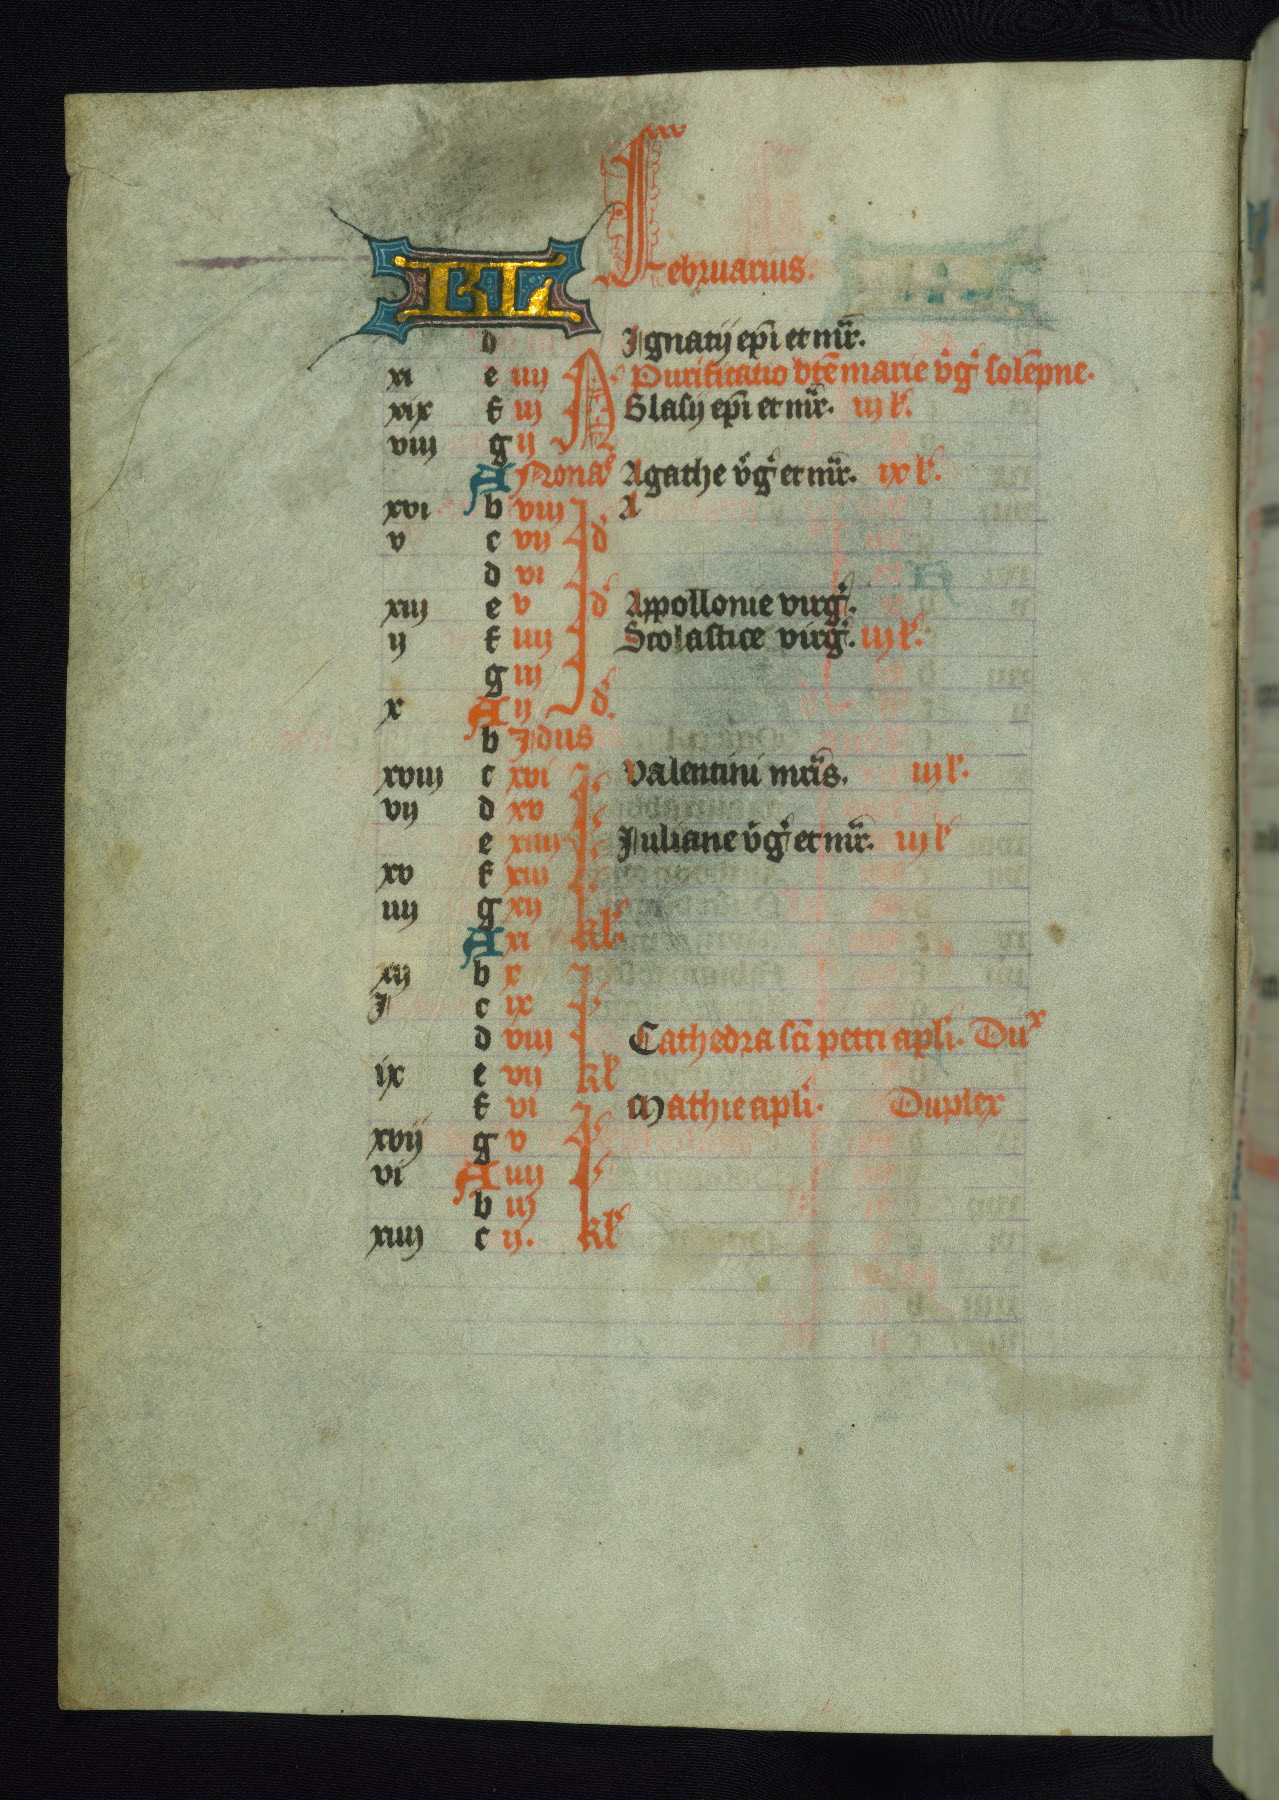 Februarius.
KL
d Ignatij ep̄i et mr̄.
xi e iiij N Purificatio bt̄e marie v̄gͥ solēpne.
xix f iij Blasij ep̄i et mr̄. iij l'.
viij g ij
A Nonaſ Agathe v̄gͥ et mr̄. ix l'.
xvi b viij A
v c vij d
d vi
xiij e v d Appollonie virgͥ.
ij f iiij Scolastice virgͥ. iij l'.
g iij
x A ij d.
b Idus
xviij c xvi Valentini mr̄is. iij l'.
vij d xv
e xiiij Iuliane v̄gͥ et mr̄. iij l'
xv f xiij
iiij g xij
A xi Kl'
xij b x
I c ix
d viij Cathedra sc̄i petri apl̄i. Duˣ
ix e vij kl
f vi Mathie apl̄i. Duplex
xvij g v
vi A iiij
b iij
xiiij c ij. kl'